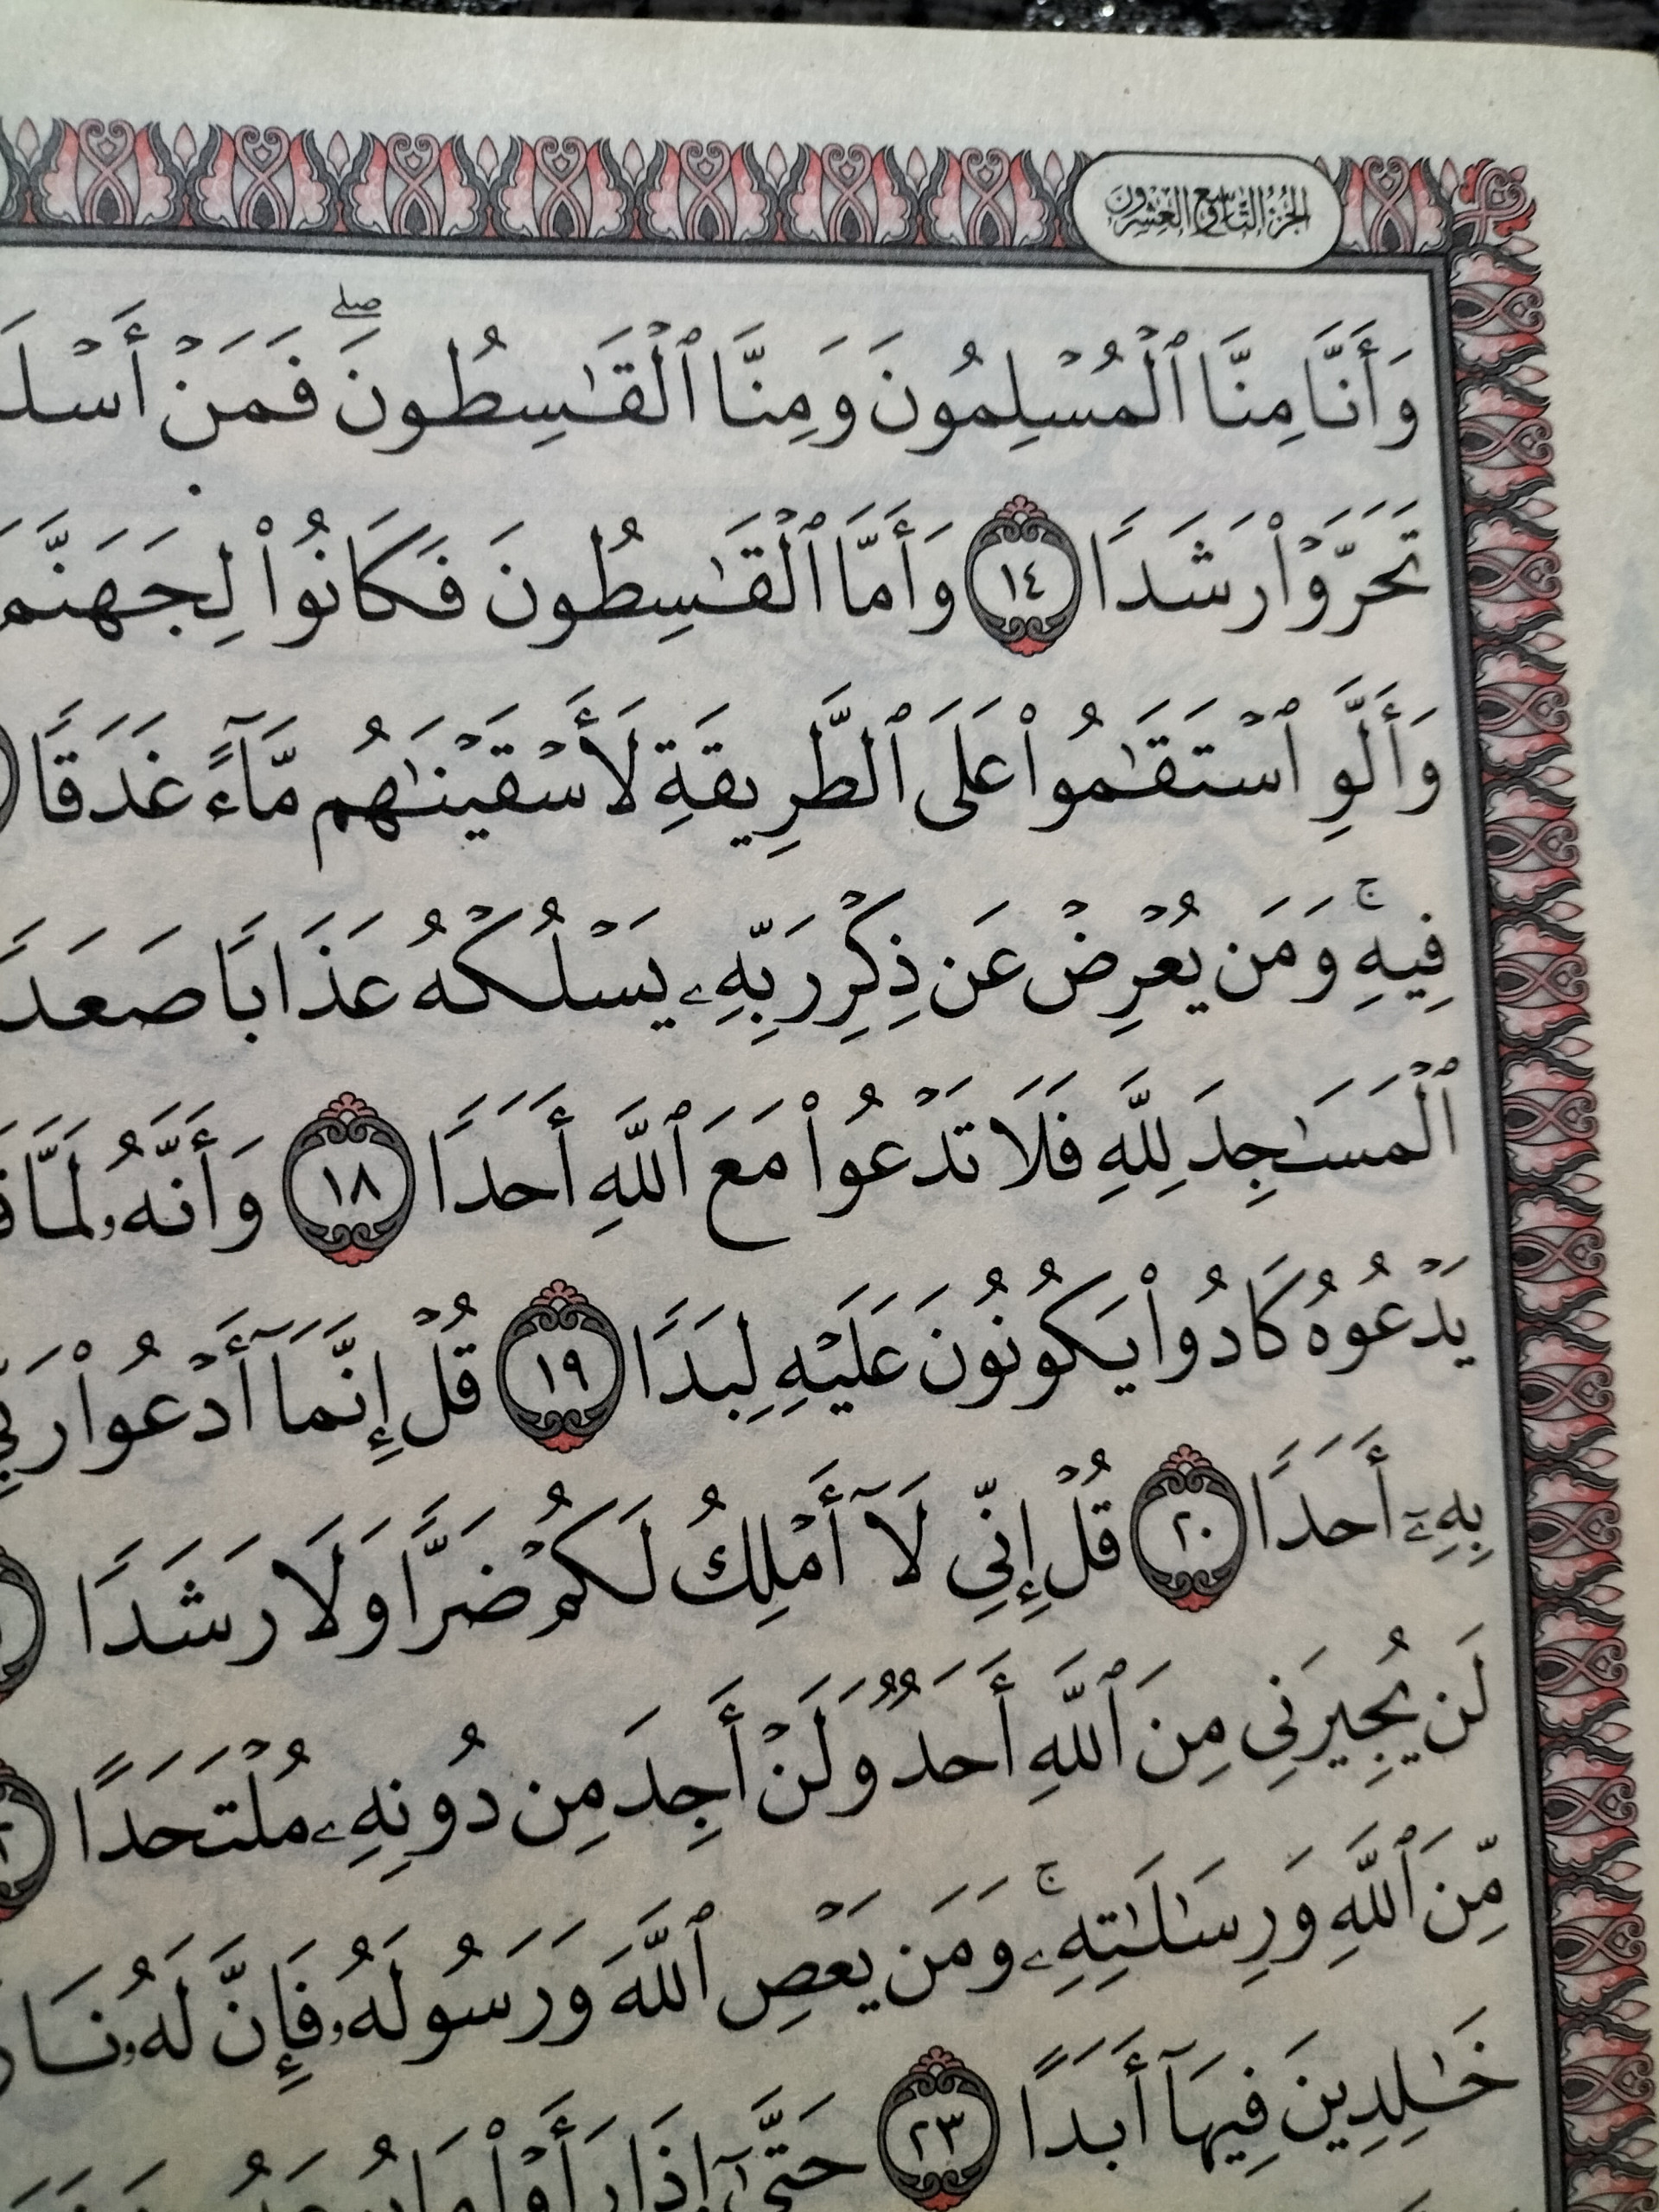 الجزء التاسع والعشرون
وَأَنَّا مِنَّا ٱلْمُسْلِمُونَ وَمِنَّا ٱلْقَٰسِطُونَ ۖ فَمَنْ
تَحَرَّوْا۟ رَشَدًا ١٤ وَأَمَّا ٱلْقَٰسِطُونَ فَكَانُوا۟ لِجَهَنَّمَ
وَأَلَّوِ ٱسْتَقَٰمُوا۟ عَلَى ٱلطَّرِيقَةِ لَأَسْقَيْنَٰهُم مَّآءً غَدَقًا
فِيهِ ۚ وَمَن يُعْرِضْ عَن ذِكْرِ رَبِّهِۦ يَسْلُكْهُ عَذَابًا صَعَدًا
ٱلْمَسَٰجِدَ لِلَّهِ فَلَا تَدْعُوا۟ مَعَ ٱللَّهِ أَحَدًا ١٨ وَأَنَّهُۥ لَمَّا
يَدْعُوهُ كَادُوا۟ يَكُونُونَ عَلَيْهِ لِبَدًا ١٩ قُلْ إِنَّمَآ أَدْعُوا۟
بِهِۦٓ أَحَدًا ٢٠ قُلْ إِنِّى لَآ أَمْلِكُ لَكُمْ ضَرًّا وَلَا رَشَدًا
لَن يُجِيرَنِى مِنَ ٱللَّهِ أَحَدٌ وَلَنْ أَجِدَ مِن دُونِهِۦ مُلْتَحَدًا
مِّنَ ٱللَّهِ وَرِسَٰلَٰتِهِۦ ۚ وَمَن يَعْصِ ٱللَّهَ وَرَسُولَهُۥ فَإِنَّ لَهُۥ
خَٰلِدِينَ فِيهَآ أَبَدًا ٢٣ حَتَّىٰٓ إِذَا رَأَوْا۟ مَا